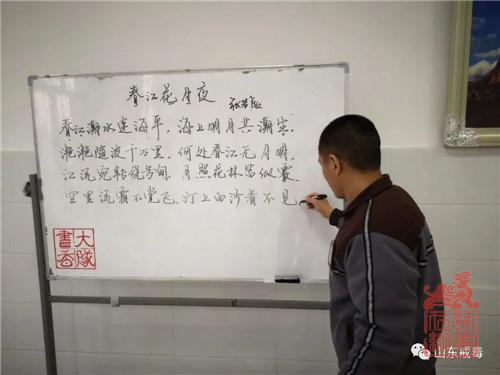 春江花月夜
张若虚
春江潮水连海平，海上明月共潮生。
滟滟随波千万里，何处春江无月明。
江流宛转绕芳甸，月照花林皆似霰
空里流霜不觉飞，汀上白沙看不见
大隊
書香
山东戒毒